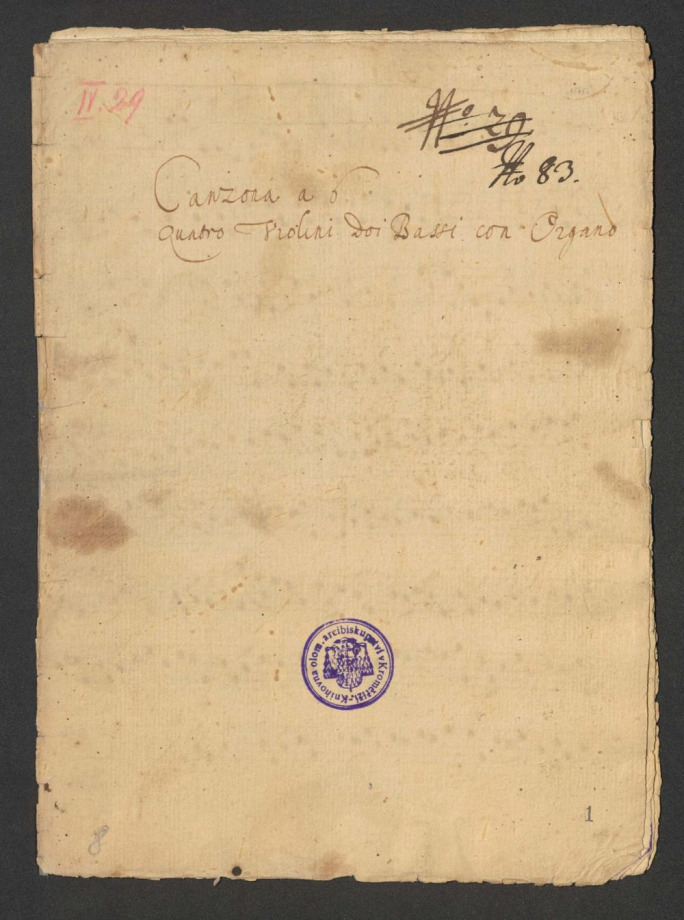 IV. 29
No. 29
No 83.
Canzona a 6
Quatro Violini Doi Bassi con Organo
Knihovna olom. arcibiskupství v Kroměříži
1
8